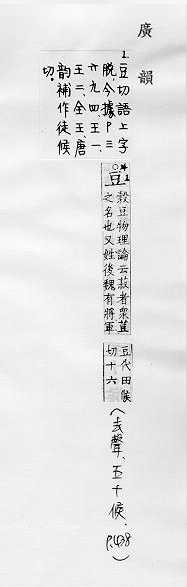 廣韻
1.豆切語上字
脫,今據P三
六九四、王一、
王二、全王、唐
韻補作徒候
切。
豆1
穀豆物理論云菽者眾豆
之名也又姓後魏有將軍
豆代田候
切十六
(去聲、五十候、P.438)